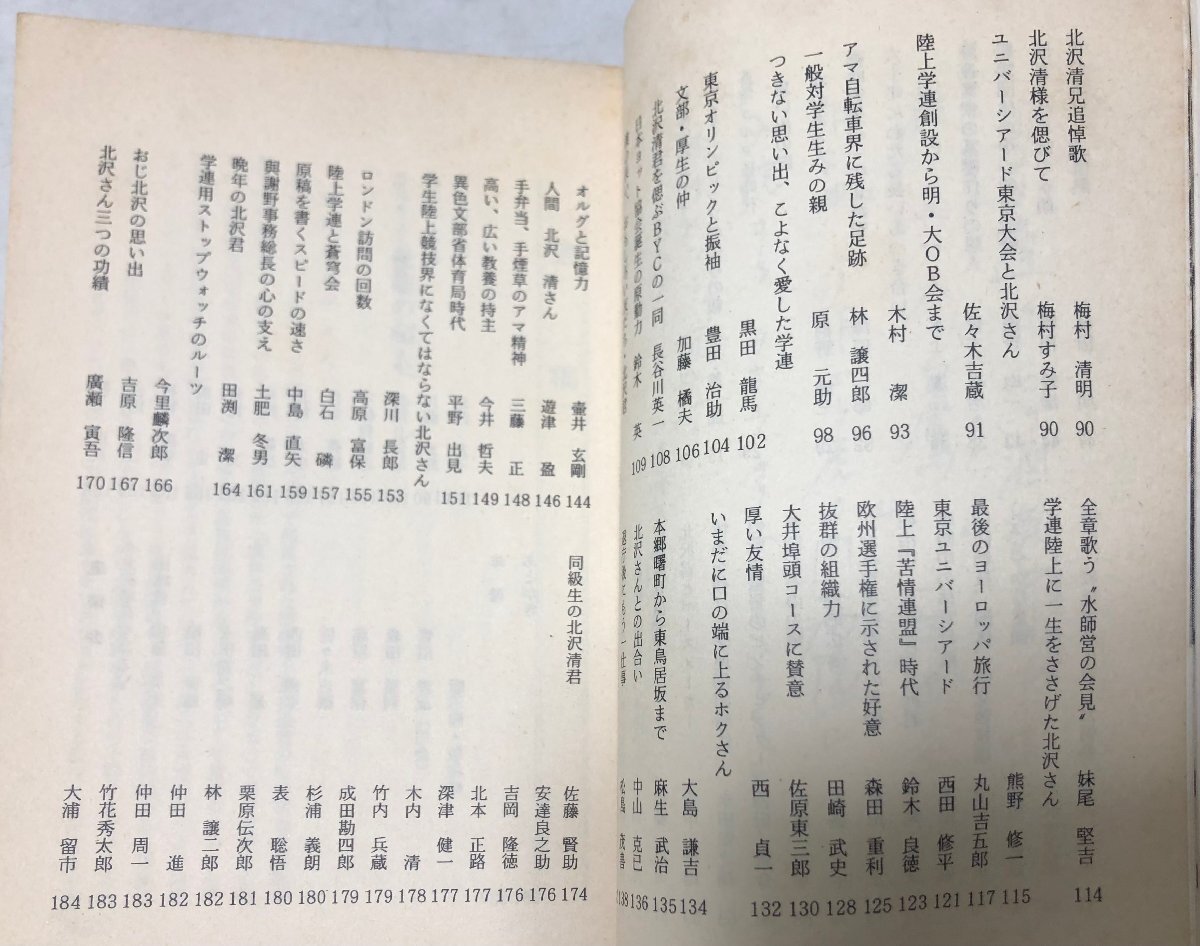 北沢清兄追悼歌 梅村 清明 90
北沢清様を偲びて 梅村すみ子 90
ユニバーシアード東京大会と北沢さん 佐々木吉蔵 91
陸上学連創設から明・大OB会まで 木村 潔 93
アマ自転車界に残した足跡 林 譲四郎 96
一般対学生生みの親 原 元助 98
つきない思い出、こよなく愛した学連 黒田 龍馬 102
東京オリンピックと振袖 豊田 治助 104
文部・厚生の仲 加藤 橘夫 106
北沢清君を偲ぶBYCの一同 長谷川英一 108
の原動力 鈴木 英 109
全章歌う〝水師営の会見〟 妹尾 堅吉 114
学連陸上に一生をささげた北沢さん 熊野 修一 115
最後のヨーロッパ旅行 丸山吉五郎 117
東京ユニバーシアード 西田 修平 121
陸上『苦情連盟』時代 鈴木 良徳 123
欧州選手権に示された好意 森田 重利 125
抜群の組織力 田崎 武史 128
大井埠頭コースに賛意 佐原東三郎 130
厚い友情 西 貞一 132
いまだに口の端に上るホクさん 大島 謙吉 134
本郷曙町から東鳥居坂まで 麻生 武治 135
北沢さんとの出合い 中山 克已 136
138
オルグと記憶力 壷井 玄剛 144
人間 北沢 清さん 遊津 盈 146
手弁当、手煙草のアマ精神 三藤 正 148
高い、広い教養の持主 今井 哲夫 149
異色文部省体育局時代 平野 出見 151
学生陸上競技界になくてはならない北沢さん 深川 長郎 153
ロンドン訪問の回数 高原 富保 155
陸上学連と蒼穹会 白石 磷 157
原稿を書くスピードの速さ 中島 直矢 159
與謝野事務総長の心の支え 土肥 冬男 161
晩年の北沢君 田渕 潔 164
学連用ストップウォッチのルーツ 今里麟次郎 166
おじ北沢の思い出 吉原 隆信 167
北沢さん三つの功績 廣瀬 寅吾 170
同級生の北沢清君
佐藤 賢助 174
安達良之助 176
吉岡 隆徳 176
北本 正路 177
深津 健一 177
木内 清 178
竹内 兵蔵 179
成田勘四郎 179
杉浦 義朗 180
表 聡悟 180
栗原伝次郎 181
林 譲二郎 182
仲田 進 182
仲田 周一 183
竹花秀太郎 183
大浦 留市 184